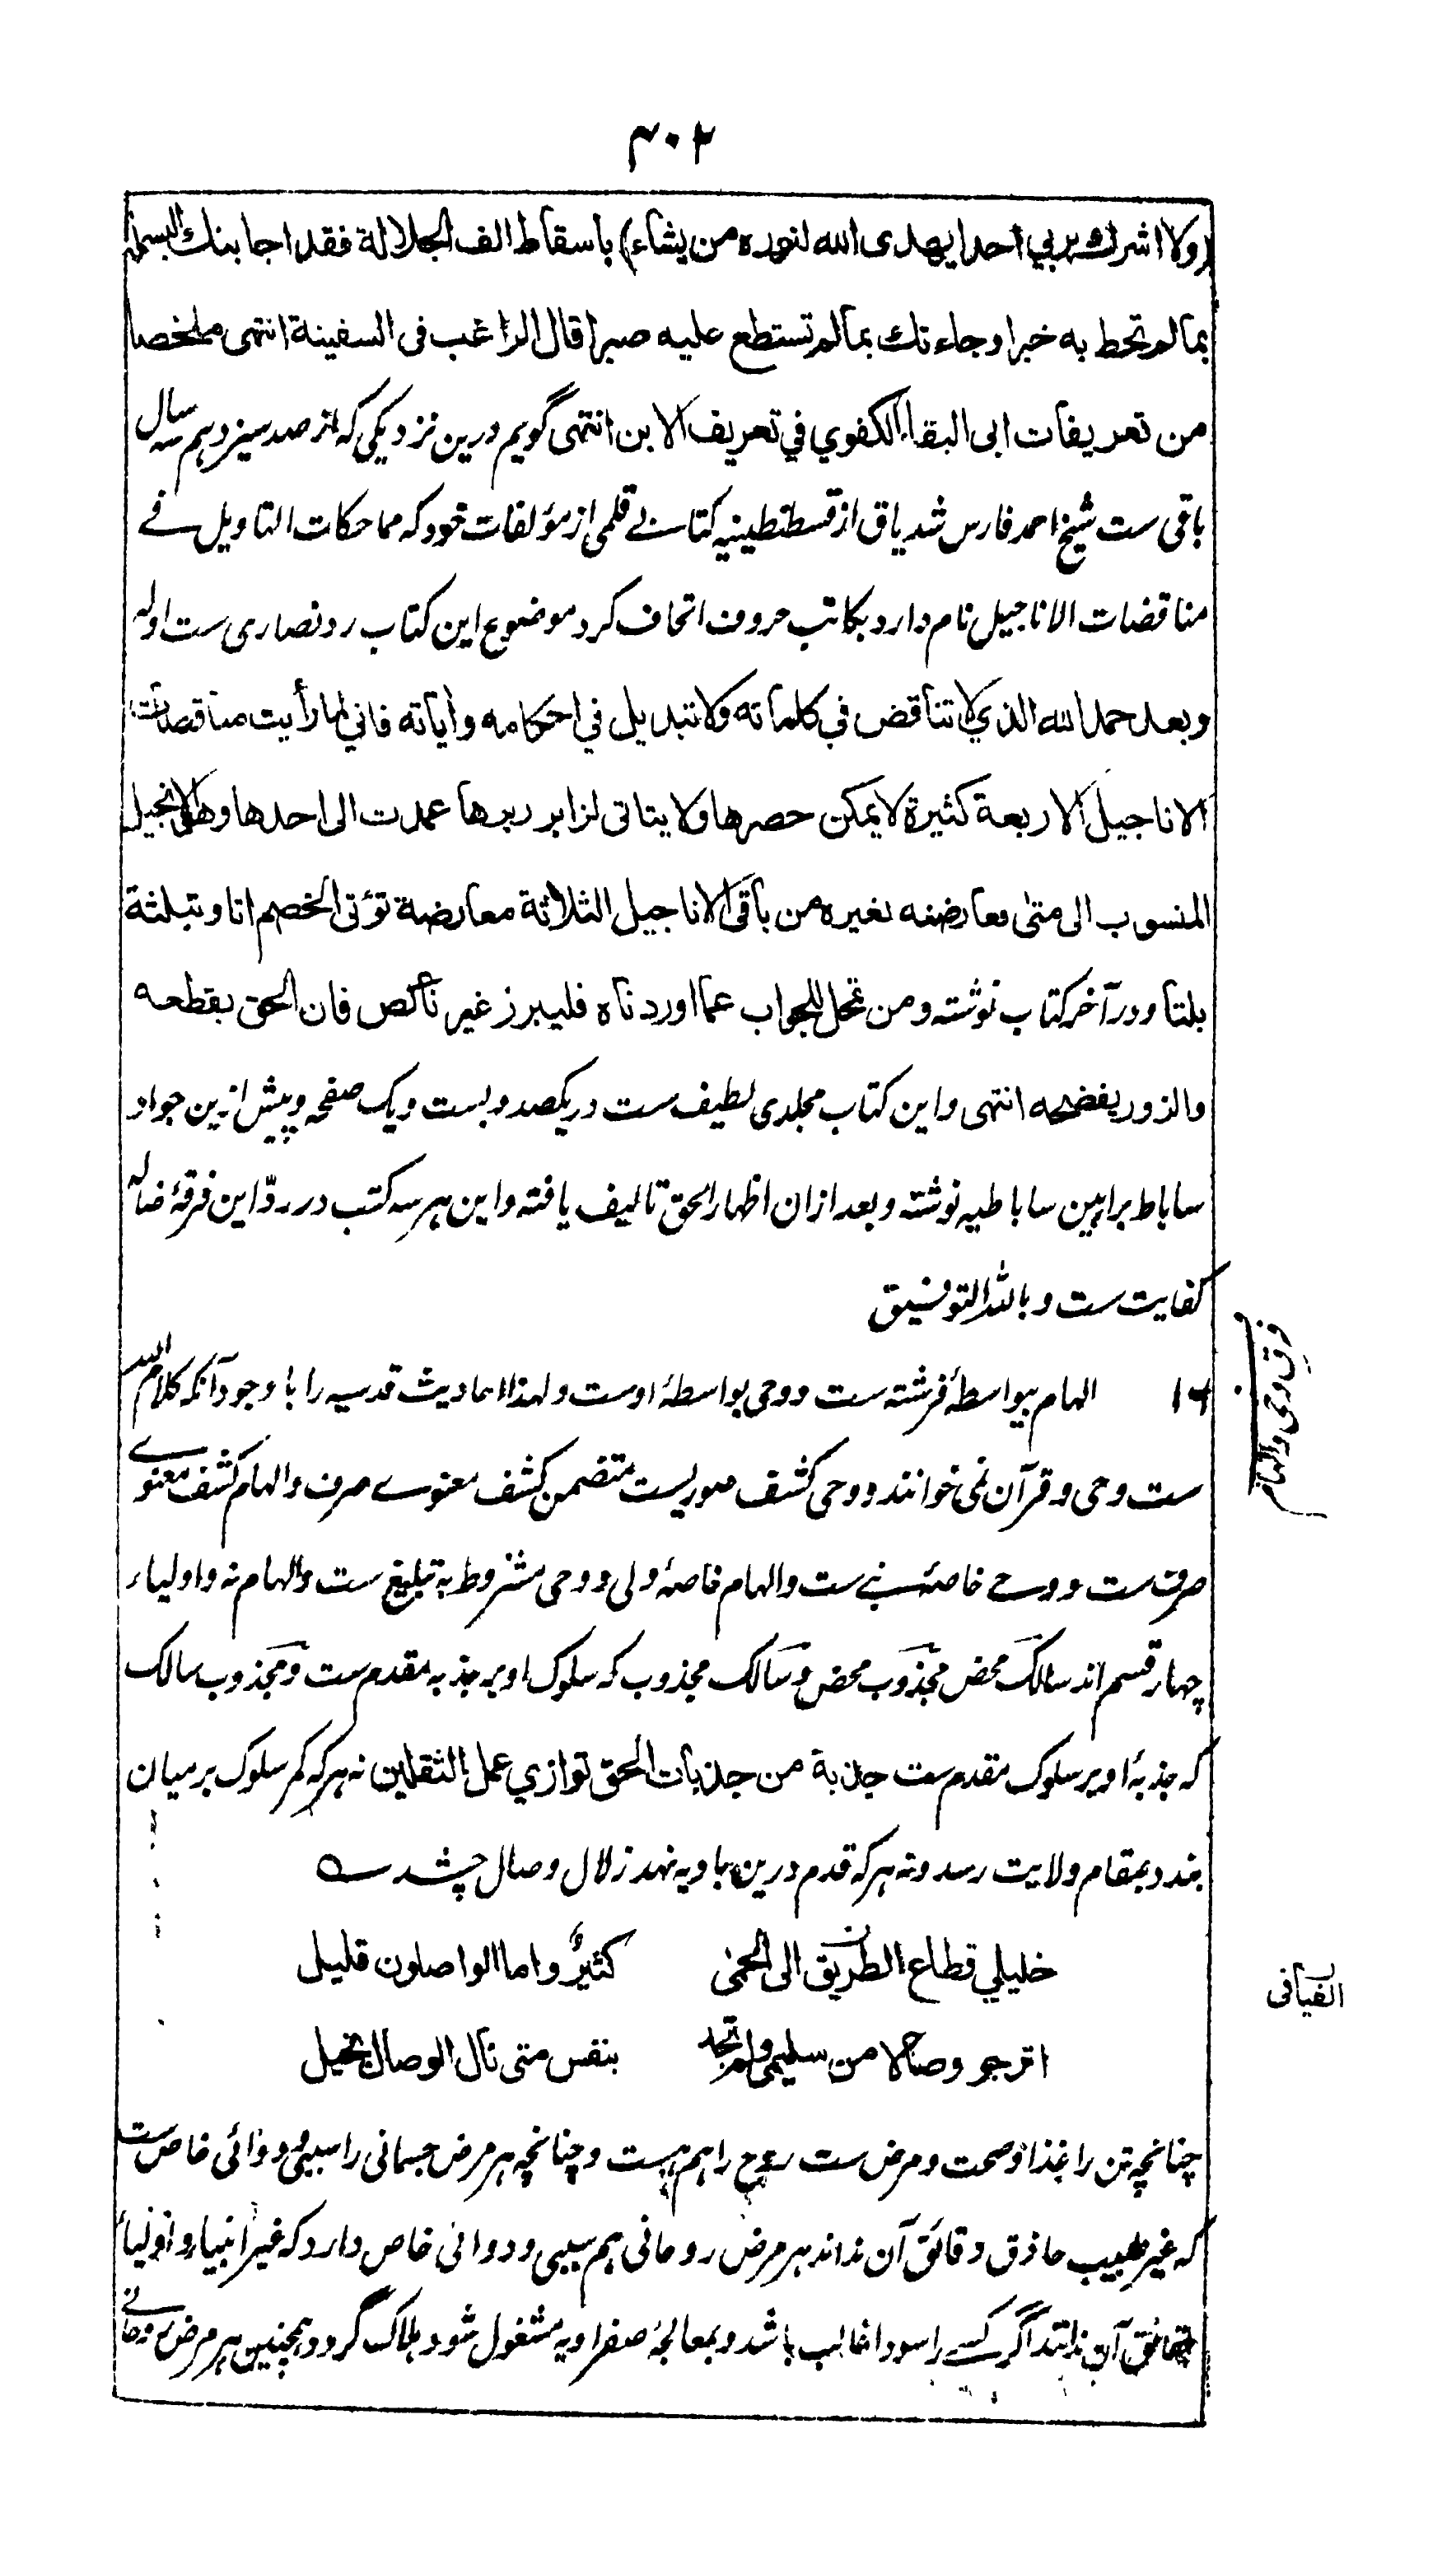 ۳۰۲
(ولا اشرك بربي احدا يهدى الله لنوره من يشاء) باسقاط الف الجلالة فقد اجابنك البسملة
بمالم تحط به خبرا وجاءتك بمالم تستطع عليه صبرا قال الراغب فى السفينة انتهى ملخصا
من تعريفات ابى البقاء الكفوي في تعريف الابن انتهى گويم درين نزديكى كه از صد سيزدهم سه سال
باقى ست شيخ احمد فارس شدياق از قسطنطينيه كتابے قلمى از مؤلفات خود كه مماحكات التاويل فے
مناقضات الاناجيل نام دارد بكاتب حروف اتحاف كرد موضوع اين كتاب رد نصارى ست اوله
وبعد حمد الله الذي لا تناقض في كلماته ولا تبديل في احكامه وآياته فاني لما رأيت مناقضات
الاناجيل الاربعة كثيرة لا يمكن حصرها ولا يتاتى لزابر زبرها عمدت الى احدها وهو الانجيل
المنسوب الى متى معارضته بغيره من باقى الاناجيل الثلاثة معارضة تؤتى الخصم اتاو تبلثة
بلتا و در آخر كتاب نوشته ومن تمحل للجواب عما اوردناه فليبرز غير ناكص فان الحق بقطعه
والزور يفضحه انتهى و اين كتاب مجلدى لطيف ست در يكصد و بست و يك صفحه و پيش ازين جواد
ساباط براهين ساباطيه نوشته و بعد ازان اظهار الحق تاليف يافته و اين هر سه كتب در ردّ اين فرقهٔ ضاله
كفايت ست و بالله التوفيق
فرق وحى و الهام
۱۶ الهام بيواسطهٔ فرشته ست و وحى بواسطهٔ اوست و لهذا احاديث قدسيه را با وجود آنكه كلام الله
ست وحى و قرآن نمى خوانند و وحى كشف صوريست متضمن كشف معنوے صرف و الهام كشف معنوے
صرف ست و وحے خاصهٔ نبے ست و الهام خاصهٔ ولى و وحى مشروط به تبليغ ست و الهام نه و اولياء
چهار قسم اند سالك محض مجذوب محض و سالك مجذوب كه سلوك او بر جذبه مقدم ست و مجذوب سالك
كه جذبهٔ او بر سلوك مقدم ست جذبة من جذبات الحق توازي عمل الثقلين نه هر كه كمر سلوك بر ميان
بندد بمقام ولايت رسد و نه هر كه قدم درين باديه نهد زلال وصال چشد ے
خليلي قطاع الطريق الى الحمى كثيرٌ واما الواصلون قليل
الفيافى
اترجو وصالا من سليمى ولم تجد بنفس متى نال الوصال بخيل
چنانچه تن را غذا و صحت و مرض ست روح را هم هست و چنانچه هر مرض جسمانى را سببى و دوائى خاص ست
كه غير طبيب حاذق دقائق آن نداند هر مرض روحانى هم سببى و دوائى خاص دارد كه غير انبيا و اولياء
حقائق آن ندانند اگر كسے را سودا غالب باشد و بمعالجهٔ صفراويه مشغول شود هلاك گردد همچنين هر مرض روحانے